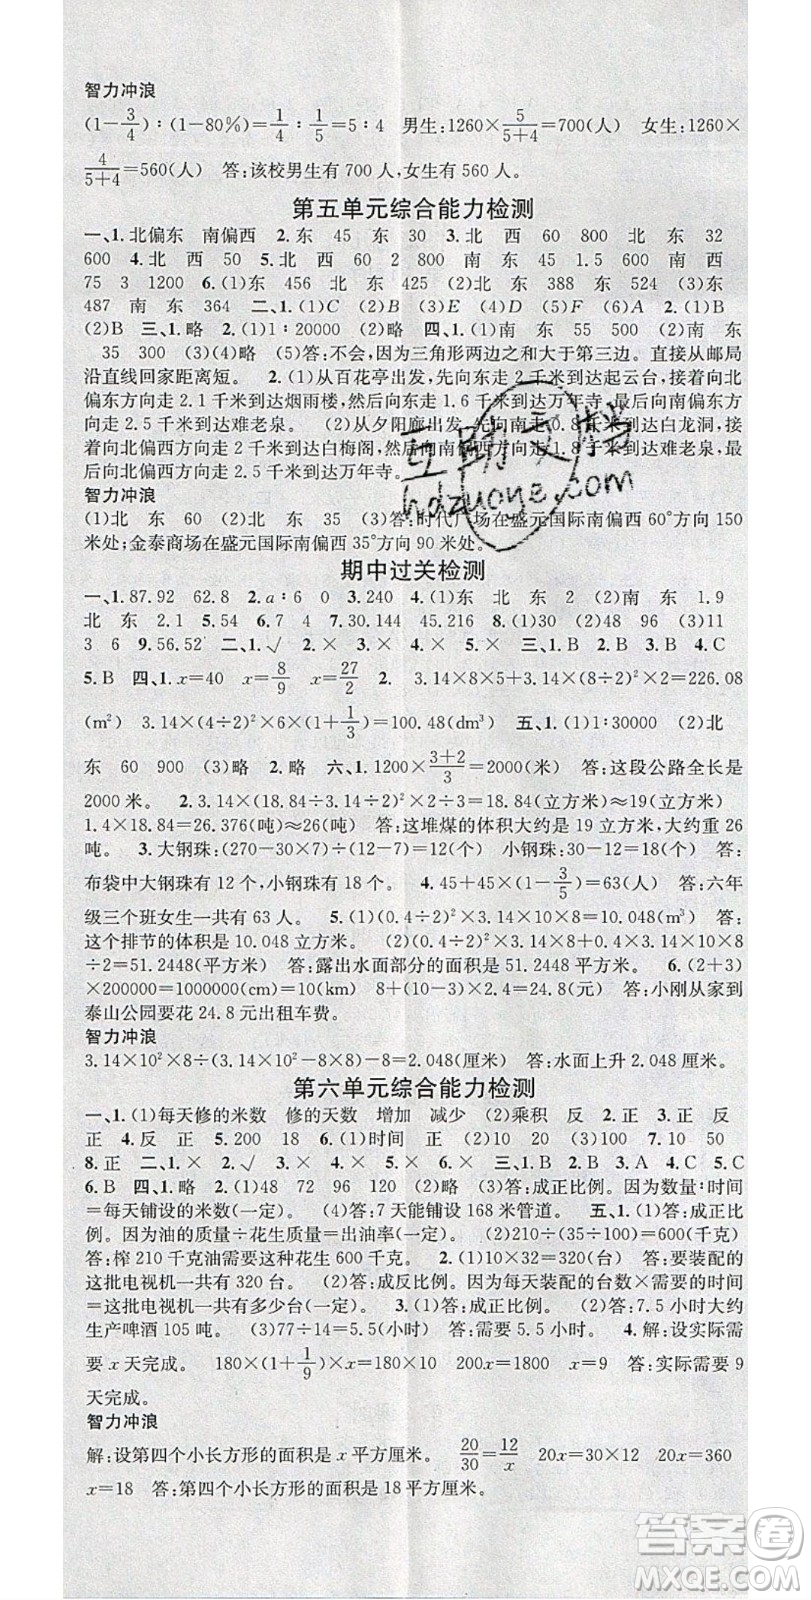 智力冲浪
(1-3/4)∶(1-80%)=1/4∶1/5=5∶4 男生:1260×5/(5+4)=700(人) 女生:1260×
4/(5+4)=560(人) 答:该校男生有 700 人,女生有 560 人。
第五单元综合能力检测
一、1.北偏东 南偏西 2.东 45 东 30 3.北 西 60 800 北 东 32
600 4.西 北 50 5.北 西 60 2 800 南 东 45 1.5 600 南 西
75 3 1200 6.(1)东 456 北 东 425 (2)北 东 388 东 524 (3)东
487 南 东 364 二、1.(1)C (2)B (3)E (4)D (5)F (6)A 2.(1)B
(2)B 三、1.略 2.(1)1∶20000 (2)略 四、1.(1)南 东 55 500 (2)南 东
35 300 (3)略 (4)略 (5)答:不会,因为三角形两边之和大于第三边。直接从邮局
沿直线回家距离短。 2.(1)从百花亭出发,先向东走 2 千米到达起云台,接着向北
偏东方向走 2.1 千米到达烟雨楼,然后向东走 1.6 千米到达万年寺,最后向南偏东
方向走 1.5 千米到达难老泉。 (2)从夕阳廊出发,向东走 0.8 千米到达白龙洞,
接着向北偏西方向走 到达白梅阁,然后向南偏西方向走 1.8 千米到达难老泉,最
后向北偏西方向走 2.5 千米到达万年寺。
智力冲浪
(1)北 东 60 (2)北 东 30 (3)答:时代广场在盛元国际南偏西 60°方向 150
米处;金泰商场在盛元国际南偏西 35°方向 90 米处。
期中过关检测
一、1.87.92 62.8 2.a∶6 0 3.240 4.(1)东 北 东 2 (2)南 东 1.9
北 东 2.1 5.54 6.7 4 7.30.144 45.216 8.(1)30 (2)48 96 (3)11
3 6 9.56.52 二、1.√ 2.× 3.× 4.× 5.× 三、1.B 2.B 3.B 4.C
5.B 四、1.x=40 x=8/9 x=27/2 2. 3.14×8×5+3.14×(8÷2)²×2=226.08
(m²) 3.14×(4÷2)²×6×(1+1/3)=100.48(dm³) 五、1.(1)1∶30000 (2)北
东 60 900 (3)略 2.略 六、1.1200×(3+2)/3=2000(米) 答:这段公路全长是
2000 米。 2.3.14×(18.84÷3.14÷2)²×2÷3=18.84(立方米)≈19(立方米)
1.4×18.84=26.376(吨)≈26(吨) 答:这堆煤的体积大约是 19 立方米,大约重 26
吨。 3.大钢珠:(270-30×7)÷(12-7)=12(个) 小钢珠:30-12=18(个) 答:
布袋中大钢珠有 12 个,小钢珠有 18 个。 4.45+45×(1-3/5)=63(人) 答:六年
级三个班女生一共有 63 人。 5.(1)(0.4×2÷2)²×3.14×10×2=10.048(m³) 答:
这个排节的体积是 10.048 立方米。 (2)(0.4×2÷2)²×3.14×8+0.4×3.14×10×8
÷2=51.2448(平方米) 答:露出水面部分的面积是 51.2448 平方米。 6.(2+3)
×200000=1000000(cm)=10(km) 8+(10-3)×2.4=24.8(元) 答:小刚从家到
泰山公园要花 24.8 元出租车费。
智力冲浪
3.14×10²×8÷(3.14×10²-8×8)-8=2.048(厘米) 答:水面上升 2.048 厘米。
第六单元综合能力检测
一、1.(1)每天修的米数 修的天数 增加 减少 (2)乘积 反 2.正 3.正 反
正 4.反 正 5.200 18 6.(1)时间 正 (2)10 20 (3)100 7.10 50
8.正 二、1.× 2.√ 3.× 4.× 5.× 三、1.B 2.B 3.A 4.C 5.C
6.B 四、1.略 2.(1)48 72 96 120 (2)略 (3)答:成正比例。因为数量∶时间
=每天铺设的米数(一定)。 (4)答:7 天能铺设 168 米管道。 五、1.(1)答:成正比
例。因为油的质量÷花生质量=出油率(一定)。 (2)210÷(35÷100)=600(千克)
答:榨 210 千克油需要这种花生 600 千克。 2.(1)10×32=320(台) 答:要装配的
这批电视机一共有 320 台。 (2)答:成反比例。因为每天装配的台数×需要的时间
=这批电视机一共有多少台(一定)。 3.(1)答:成正比例。 (2)答:7.5 小时大约
生产啤酒 105 吨。 (3)77÷14=5.5(小时) 答:需要 5.5 小时。 4.解:设实际需
要 x 天完成。 180×(1+1/9)×x=180×10 200x=1800 x=9 答:实际需要 9
天完成。
智力冲浪
解:设第四个小长方形的面积是 x 平方厘米。 20/30=12/x 20x=30×12 20x=360
x=18 答:第四个小长方形的面积是 18 平方厘米。
互助文档
hdzuoye.com
答案圈
MXQE.COM